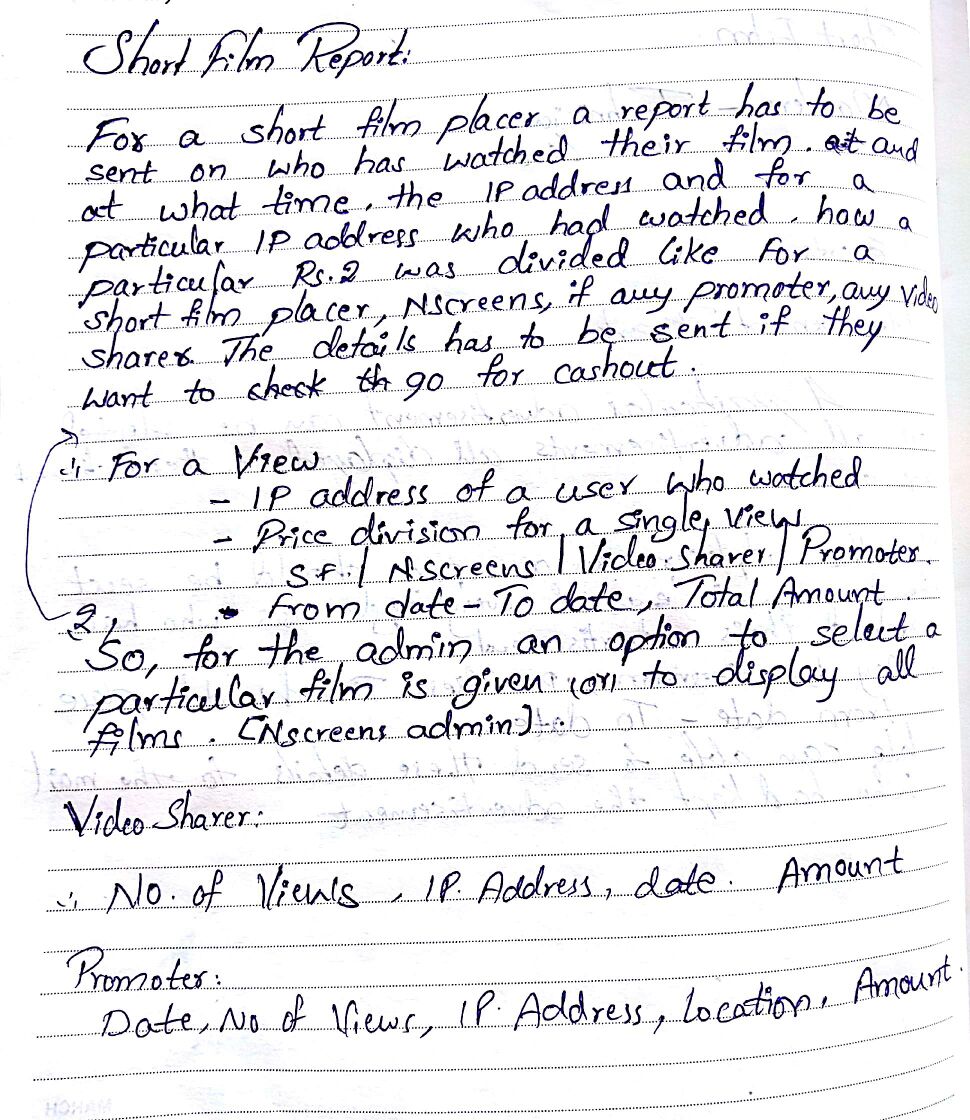 Short film Report:
For a short film placer a report has to be
sent on who has watched their film. at and
at what time, the IP address and for a
particular IP address who had watched, how a
particular Rs.2 was divided like for a
short film placer, Nscreens, if any promoter, any video
sharer. The details has to be sent if they
want to check th go for cashout.
∴ For a View
- IP address of a user who watched
- Price division for a single view
S.f. | Nscreens | Video Sharer | Promoter.
2, • from date - To date, Total Amount.
So, for the admin an option to select a
particular film is given (or) to display all
films. [Nscreens admin]
Video Sharer:
∴ No. of Views, IP. Address, date. Amount
Promoter:
Date, No of Views, IP. Address, Location, Amount.